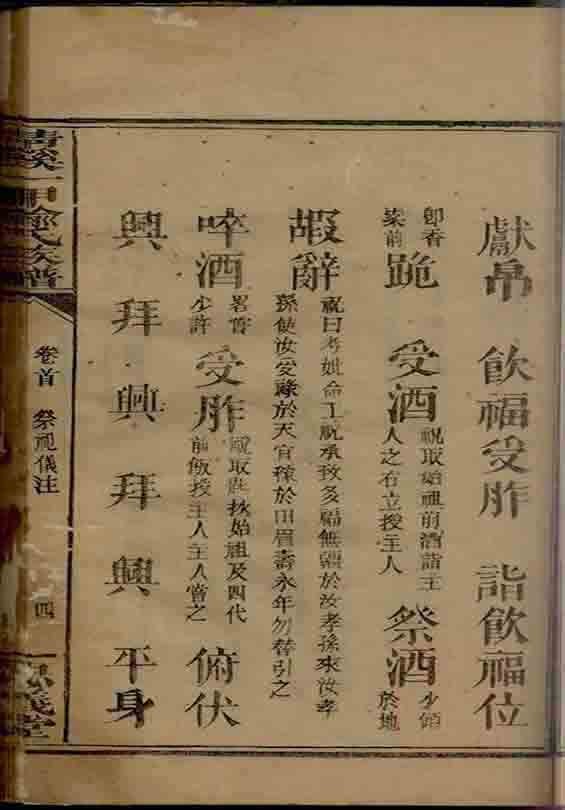 獻帛 飮福受胙 詣飮福位
卽香
案前
跪 受酒
祝取始祖前酒詣主
人之右立授主人
祭酒
少傾
於地
嘏辭
祝曰考妣命工祝承致多福無疆於汝孝孫來汝孝
孫使汝受祿於天宜稼於田眉壽永年勿替引之
啐酒
畧嘗
少許
受胙
祝取匙抄始祖及四代
前飯授主人主人嘗之
俯伏
興 拜 興 拜 興 平身
清溪一 氏族譜
卷首 祭祀儀注
四
義堂